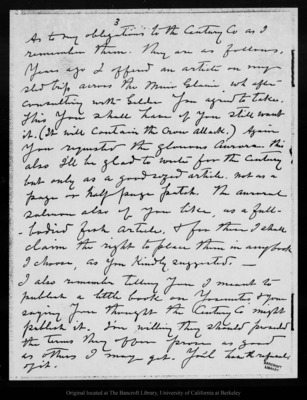 3
As to my obligations to the Century Co as I
remember them. They are as follows.
Years ago I offered an article on my
sled trip across the Muir Glacier, wh after
consulting with Gilder You agreed to take.
This You shall have if You still want
it. (It will contain the Crow attack.) Again
You requested the glorious Aurora. This
also I'll be glad to write for the Century
but only as a good sized article, not as a
page or half page patch. The auroral
also if You like, as a full-
-bodied article, & for them I shall
claim the right to place them in any book
I choose, as You kindly suggested. —
I also remember telling You I meant to
publish a little book on Yosemite, & your
saying You thought the Century Co might
publish it. I'm willing they should provided
the terms they offer prove as good
as others I may get. You'll have the refusal
of it.
BANCROFT
LIBRARY
Original located at The Bancroft Library, University of California at Berkeley